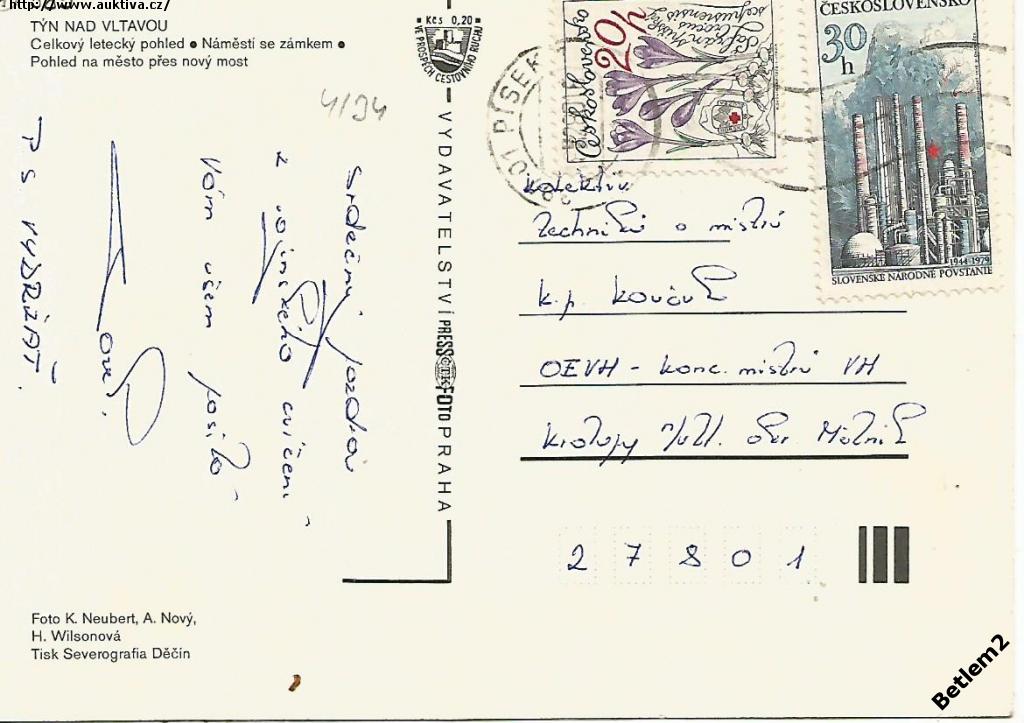 http://www.auktiva.cz/
TÝN NAD VLTAVOU
Celkový letecký pohled ● Náměstí se zámkem ●
Pohled na město přes nový most
4/94
Srdečný pozdrav
z vojinského cvičení
Vám všem posílá
P S VYDRŽAŤ.
Foto K. Neubert, A. Nový,
H. Wilsonová
Tisk Severografia Děčín
Kčs 0,20
VE PROSPĚCH CESTOVNÍHO RUCHU
VYDAVATELSTVÍ PRESSFOTO PRAHA
ČTK
PÍSEK
Československo
20h
Šafrán spišský
Crocus scepusiensis
ČESKOSLOVENSKO
30
h
1944-1979
SLOVENSKÉ NÁRODNÉ POVSTANIE
kolektiv
techniků a mistrů
k.p. Kaučuk
OEVH - konc. mistrů VH
Kralupy n/Vlt. okr. Mělník
27801
Betlem2